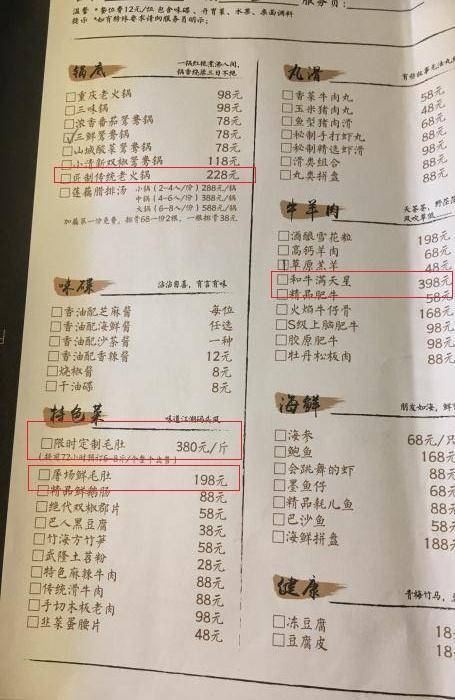 服务员:
温馨 *餐位费12元/位 包含味碟、开胃菜、水果、桌面调料
提示 *如有特殊要求请向服务员明示;
锅底
一锅红艳煮沸人间,
□重庆老火锅 98元
□三味锅 98元
□浓香番茄鸳鸯锅 78元
□三鲜鸳鸯锅 78元
□山城酸菜鸳鸯锅 78元
□小清新双椒鸳鸯锅 118元
□匠制传统老火锅 228元
□莲藕腊排汤 小锅(2-4人/份)288元/锅
中锅(4-6人/份)388元/锅
大锅(6-8人/份)588元/锅
加藕第一份免费, 排骨68一份2根, 一根排骨38元
味碟
□香油配芝麻酱 每位
□香油配海鲜酱 任选
□香油配沙茶酱 一种
□香油配香辣酱 12元
□烧椒酱 8元
□干油碟 8元
特色菜
味道江湖码头风
□限时定制毛肚 380元/斤
□屠场鲜毛肚 198元
□精品鲜鹅肠 88元
□绝代双椒郡片 58元
□巴人黑豆腐 38元
□竹海方竹笋 58元
□武隆土苕粉 28元
□特色麻辣牛肉 88元
□传统滑牛肉 88元
□手切木板老肉 98元
□韭菜蛋腰片 48元
丸滑
□香菜牛肉丸 58元
□玉米猪肉丸 48元
□鱼型猪肉滑 68元
□秘制手打虾丸 88元
□秘制精选虾滑 98元
□滑类组合 88元
□丸类拼盘 88元
牛羊肉
天苍苍, 野茫茫
风吹草低
□酒酿雪花粒 198元
□高钙羊肉 68元
□草原羔羊 48元
□和牛满天星 398元
□精品肥牛 58元
□火焰牛仔骨 168元
□S级上脑肥牛 98元
□胶原肥牛 98元
□牡丹松板肉 88元
海鲜
朋友如海, 鲜
□海参 68元/只
□鲍鱼 168元
□会跳舞的虾 88元
□墨鱼仔 68元
□精品耗儿鱼 88元
□巴沙鱼 58元
□海鲜拼盘 188元
健康
青梅竹马,
□冻豆腐 18
□豆腐皮 18